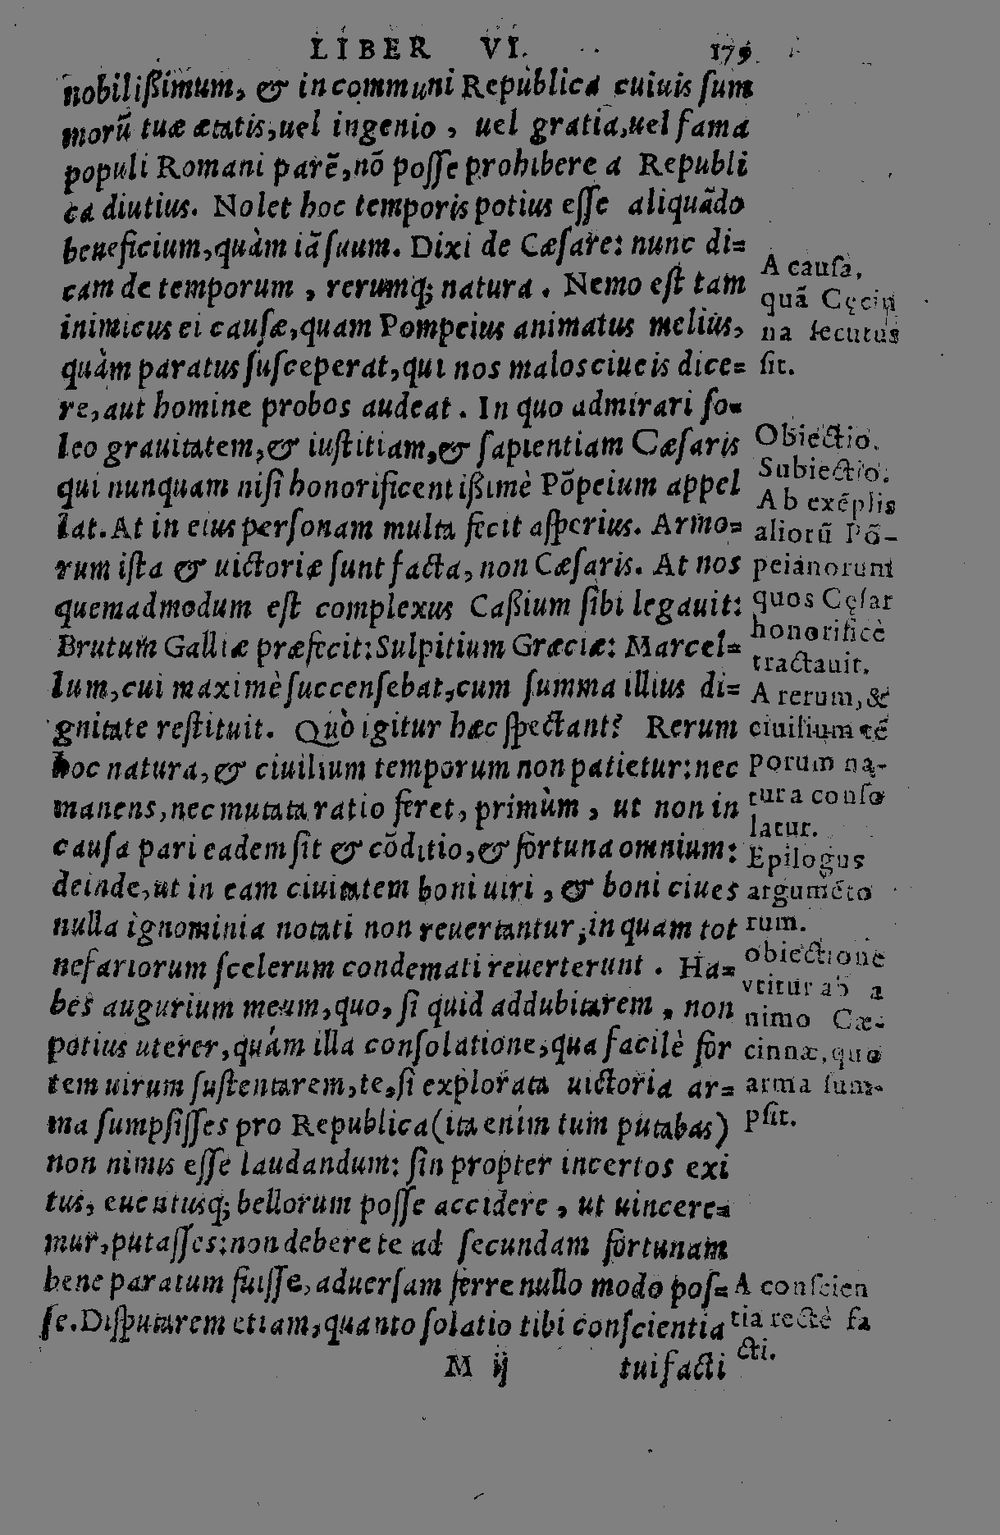 LIBER VI. 179
nobilißimum, & in communi Republica cuiuis sum
morũ tuæ ætatis, uel ingenio, uel gratia, uel fama
populi Romani parẽ, nõ posse prohibere a Republi
ca diutius. Nolet hoc temporis potius esse aliquãdo
beneficium, quàm iã suum. Dixi de Cæsare: nunc di=
cam de temporum, rerumq; natura. Nemo est tam
inimicus ei causæ, quam Pompeius animatus melius,
quàm paratus susceperat, qui nos malos ciueis dice=
re, aut homine probos audeat. In quo admirari so=
leo grauitatem, & iustitiam, & sapientiam Cæsaris
qui nunquam nisi honorificentißimè Põpeium appel
lat. At in eius personam multa fecit asperius. Armo=
rum ista & uictoriæ sunt facta, non Cæsaris. At nos
quemadmodum est complexus Caßium sibi legauit:
Brutum Galliæ præfecit: Sulpitium Græciæ: Marcel=
lum, cui maximè succensebat, cum summa illius di=
gnitate restituit. Quò igitur hæc spectant? Rerum
hoc natura, & ciuilium temporum non patietur: nec
manens, nec mutata ratio feret, primùm, ut non in
causa pari eadem sit & cõditio, & fortuna omnium:
deinde, ut in eam ciuitatem boni uiri, & boni ciues
nulla ignominia notati non reuertantur, in quam tot
nefariorum scelerum condemati reuerterunt. Ha=
bes augurium meum, quo, si quid addubitarem, non
potius uterer, quám illa consolatione, qua facilè for
tem uirum sustentarem, te, si explorata uictoria ar=
ma sumpsisses pro Republica (ita enim tum putabas)
non nimis esse laudandum: sin propter incertos exi
tus, euentusq; bellorum posse accidere, ut uincere=
mur, putasses: non debere te ad secundam fortunam
bene paratum fuisse, aduersam ferre nullo modo pos=
se. Disputarem etiam, quanto solatio tibi conscientia
M ij tui facti
A causa,
quã Cęcin
na secutus
sit.
Obiectio.
Subiectio.
Ab exẽplis
aliorũ Põ-
peianorum
quos Cęsar
honorificè
tractauit.
A rerum, &
ciuilium tẽ
porum na-
tura conso
latur.
Epilogus
argumẽto
rum.
obiectione
vtitur ab a
nimo Cæ-
cinnæ, quo
arma sum-
psit.
A conscien
tia rectè fa
cti.